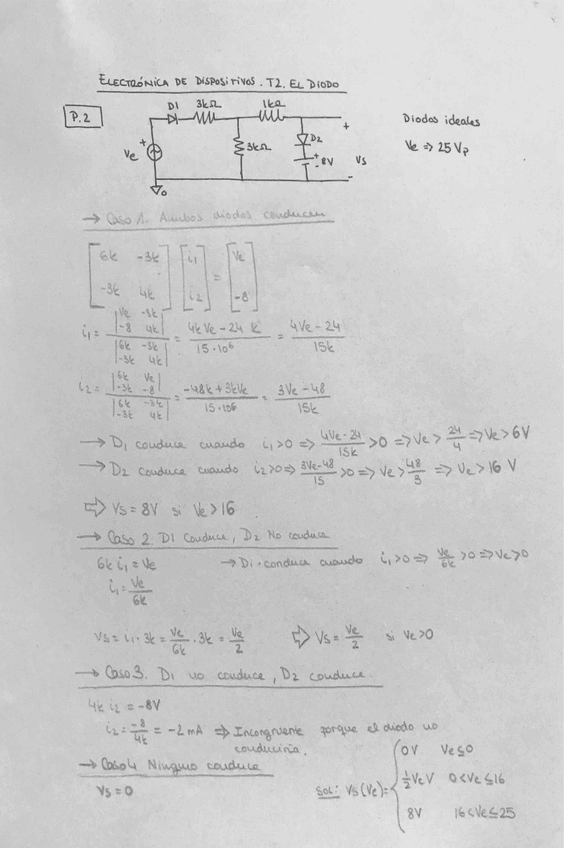 ELECTRÓNICA DE DISPOSITIVOS. T2. EL DIODO
P.2
D1 3kΩ 1kΩ
Diodos ideales
Ve ⇒ 25 Vp
+ Ve 3kΩ D2 + 8V + Vs -
0
→ Caso 1. Ambos diodos conducen
[6k -3k; -3k 4k] [i1; i2] = [Ve; -8]
i1 = |Ve -3k; -8 4k| / |6k -3k; -3k 4k| = (4kVe - 24k) / (15·10^6) = (4Ve - 24) / 15k
i2 = |6k Ve; -3k -8| / |6k -3k; -3k 4k| = (-48k + 3kVe) / (15·10^6) = (3Ve - 48) / 15k
→ D1 conduce cuando i1>0 ⇒ (4Ve-24)/15k >0 ⇒ Ve > 24/4 ⇒ Ve > 6V
→ D2 conduce cuando i2>0 ⇒ (3Ve-48)/15 >0 ⇒ Ve > 48/3 ⇒ Ve > 16 V
⇒ Vs = 8V si Ve > 16
→ Caso 2. D1 conduce, D2 No conduce
6k i1 = Ve → D1 conduce cuando i1>0 ⇒ Ve/6k >0 ⇒ Ve>0
i1 = Ve/6k
Vs = i1·3k = Ve/6k · 3k = Ve/2 ⇒ Vs = Ve/2 si Ve>0
→ Caso 3. D1 no conduce, D2 conduce.
4k i2 = -8V
i2 = -8/4k = -2 mA ⇒ Incongruente porque el diodo no
conduciría.
→ Caso 4. Ninguno conduce
Vs = 0
Sol: Vs(Ve) = { 0V Ve ≤ 0
½ Ve V 0 < Ve ≤ 16
8V 16 < Ve ≤ 25